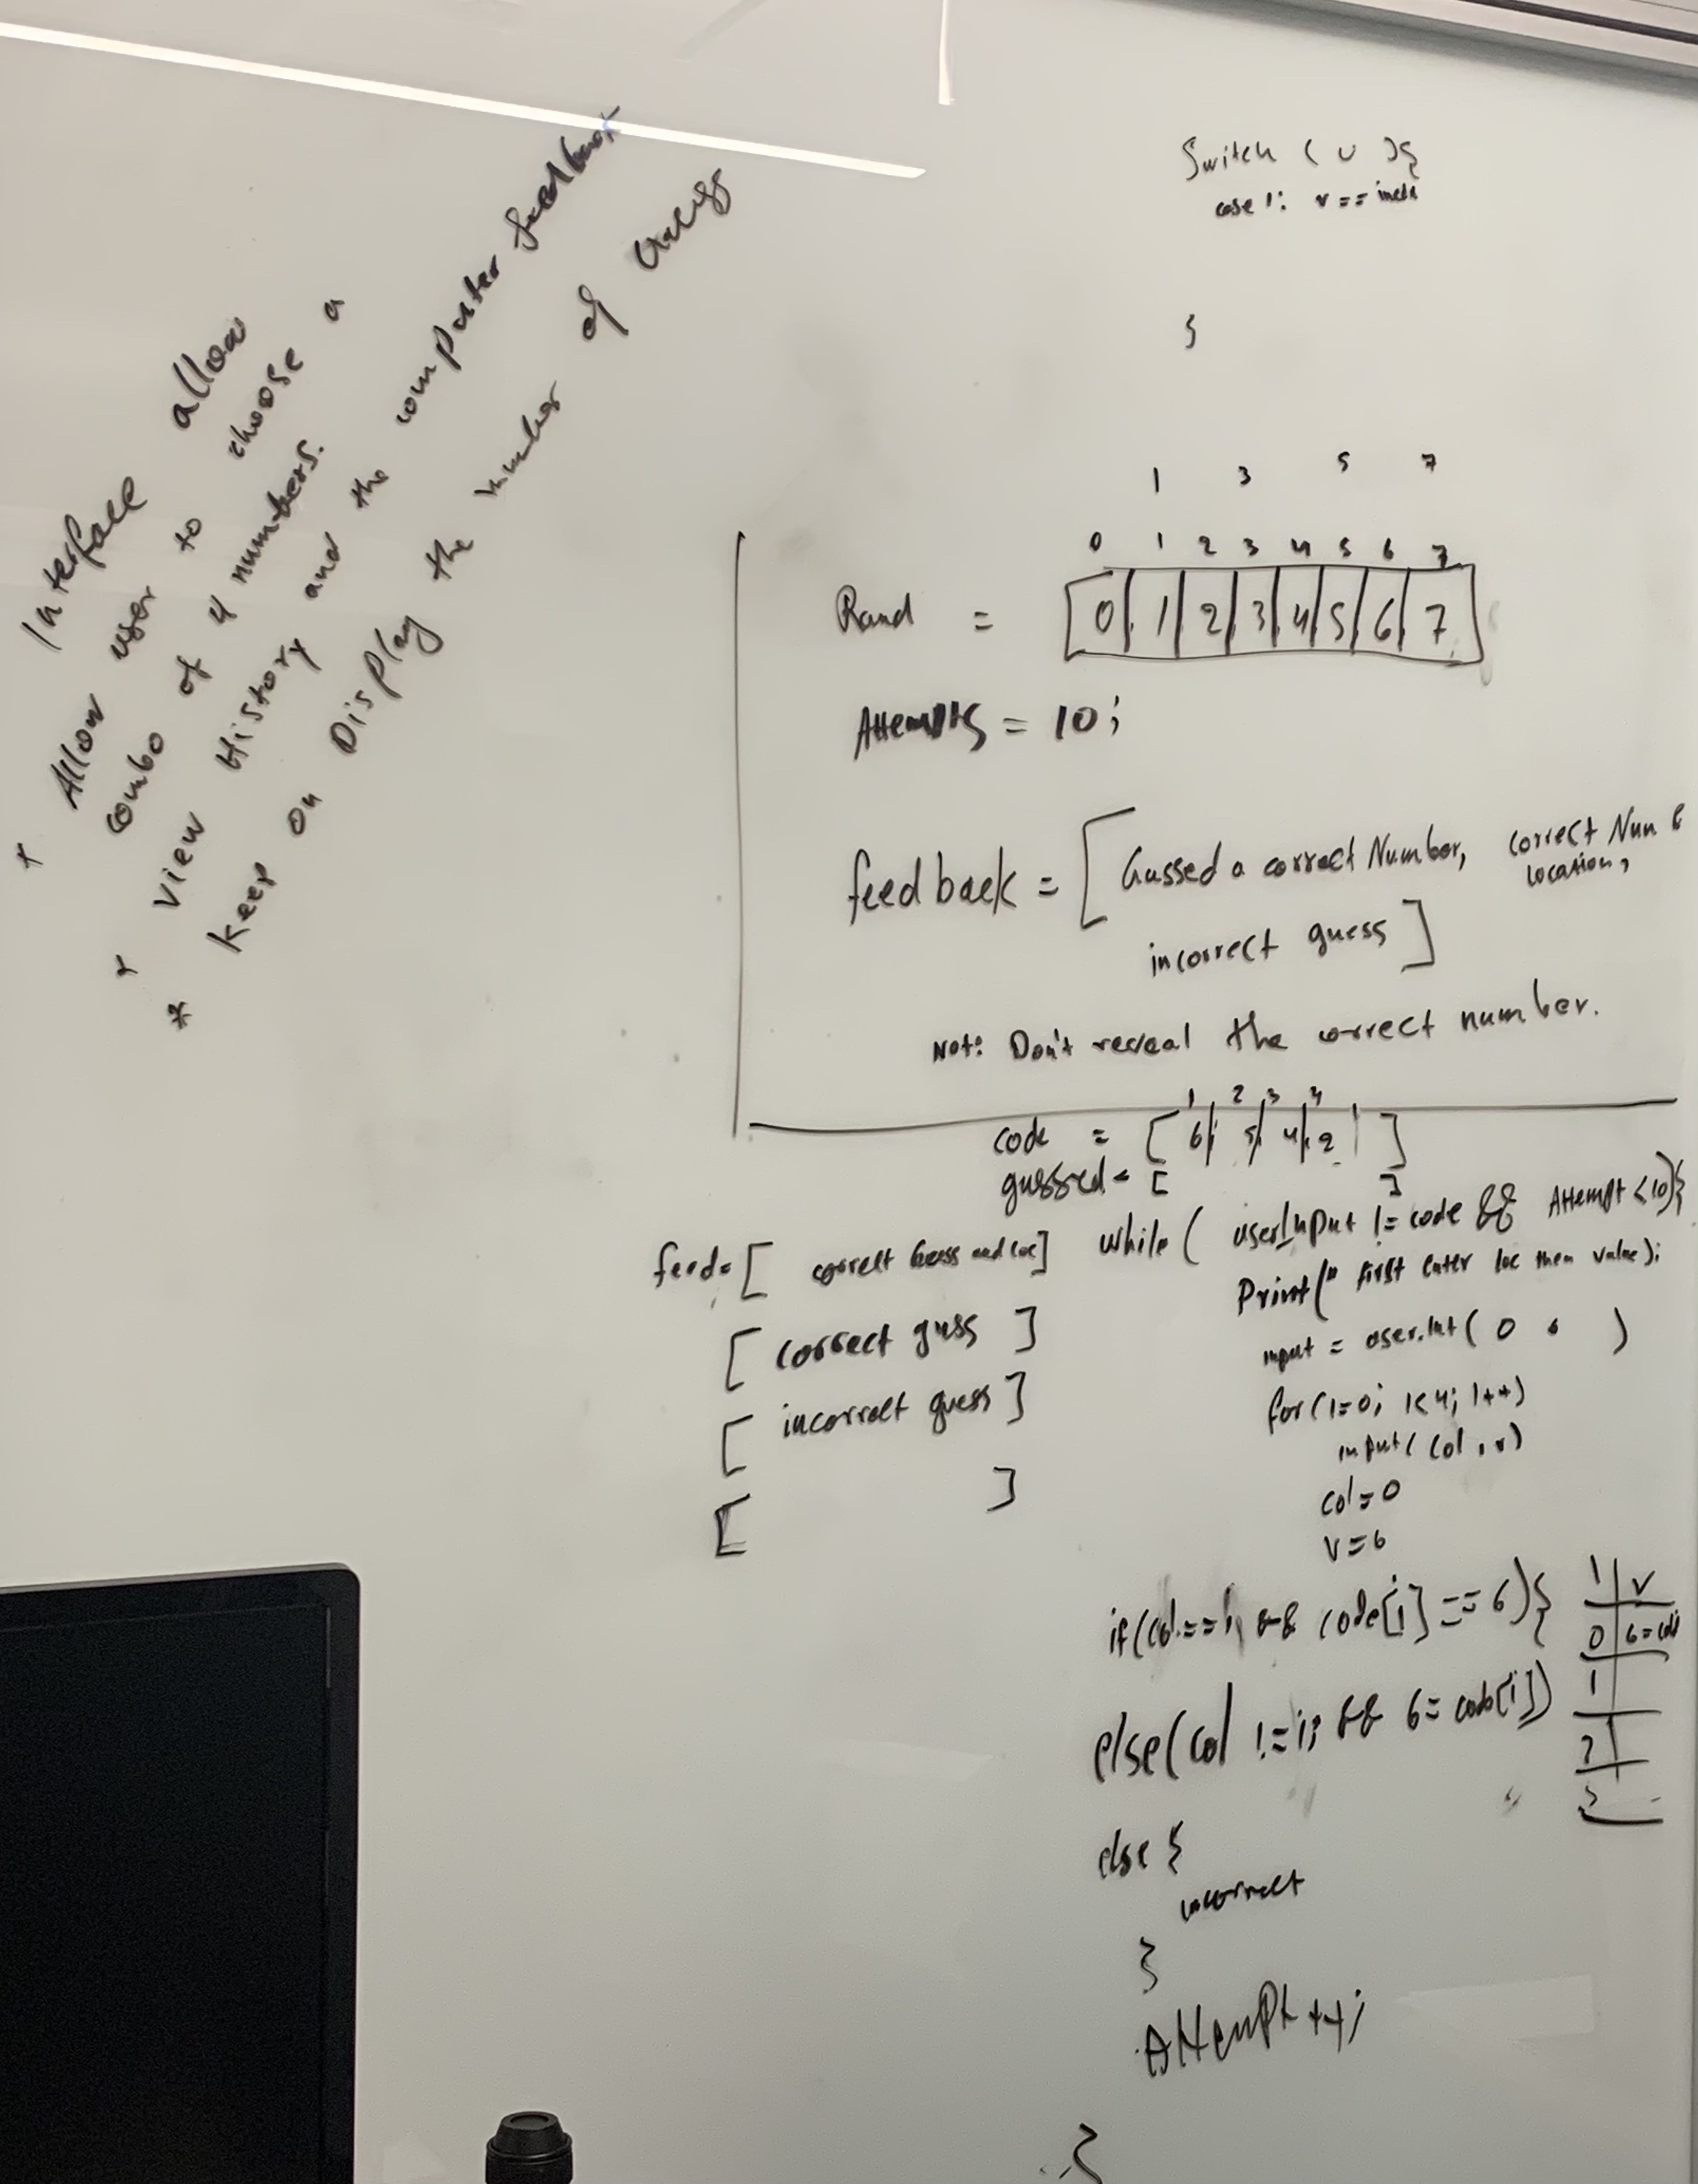 Interface allow
* Allow user to choose a
combo of 4 numbers.
* View History and the computer feedback
* keep on Display the number of
Switch ( v ){
case 1: v ==
}
1 3 5 7
0 1 2 3 4 5 6 7
Rand = [0|1|2|3|4|5|6|7]
Attempts = 10;
feedback = [ Gussed a correct Number, correct Num &
location,
incorrect guess ]
Not: Don't reveal the correct number.
1 2 3 4
code = [ 6| 5| 4| 2 | ]
gussed = [ ]
feed = [ correct Guess and loc]
[ correct guss ]
[ incorrect guess ]
[ ]
while ( userInput != code && Attempt <10){
Print(" first Enter loc then value);
input = user.Int( 0 )
for(i=0; i<4; i++)
input( col , v)
col = 0
v = 6
if(col == i, && code[i] == 6){
else(col != i; && 6 = code[i])
else {
incorrect
}
Attempt ++;
}
1 | v
0 | 6 =
1
2
3